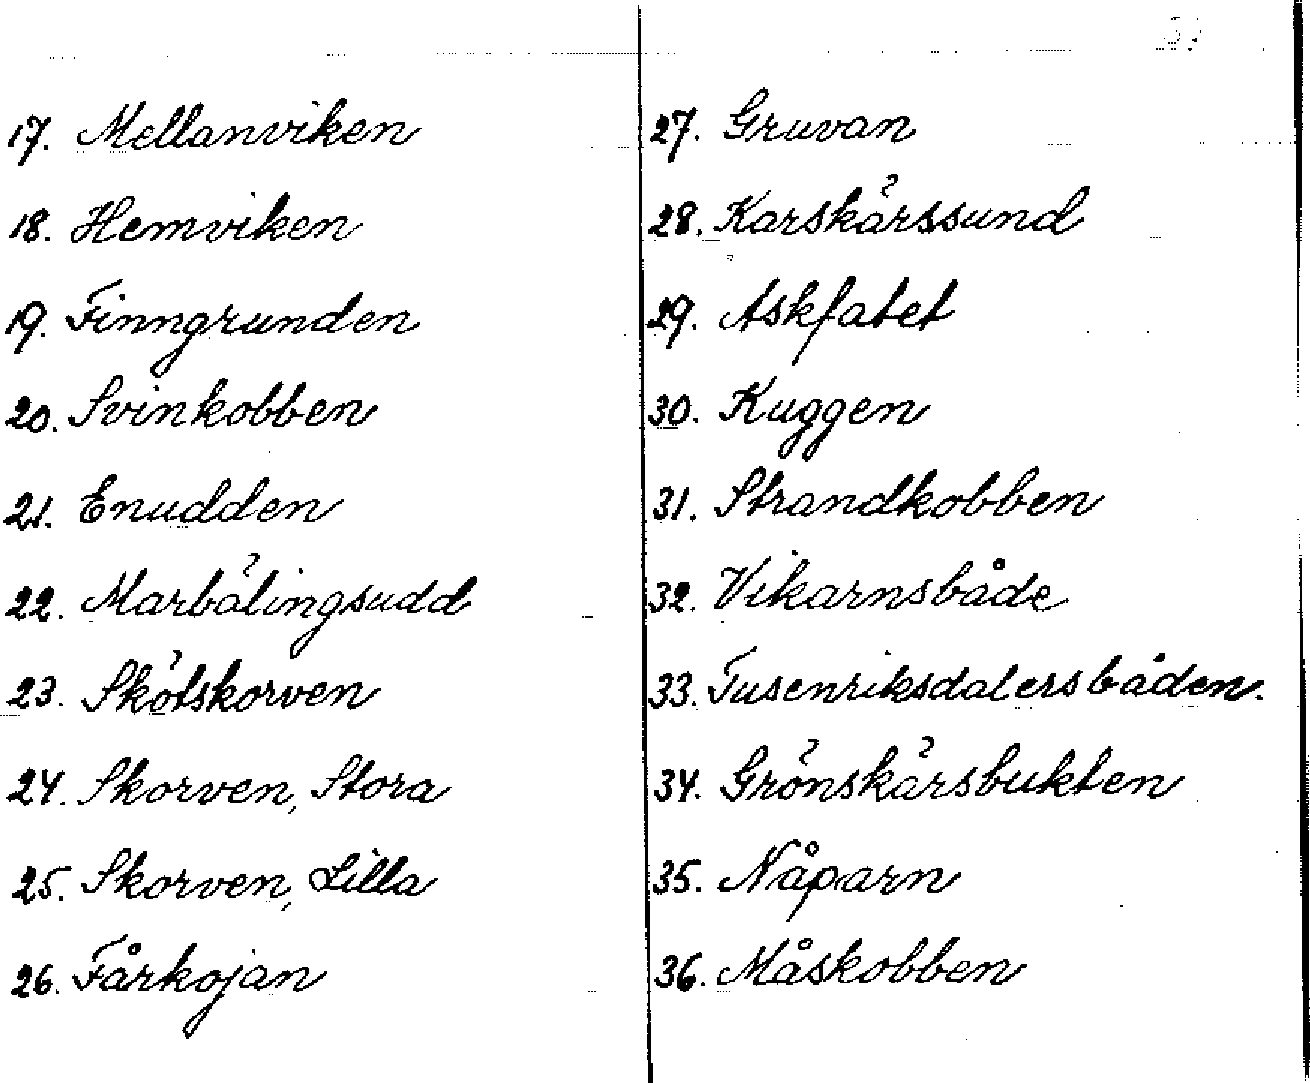 17. Mellanviken
18. Hemviken
19. Finngrunden
20. Svinkobben
21. Enudden
22. Marbälingsudd
23. Skötskorven
24. Skorven, Stora
25. Skorven, Lilla
26. Fårkojan
27. Gruvan
28. Karskärssund
29. Askfatet
30. Kuggen
31. Strandkobben
32. Vikarnsbåde
33. Tusenriksdalersbåden.
34. Grönskärsbukten
35. Nåparn
36. Måskobben